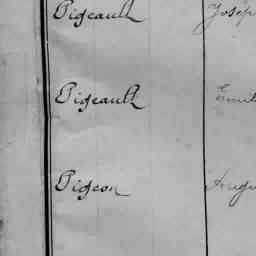 Pigeault Josep
Pigeault Emil
Pigeon Augu